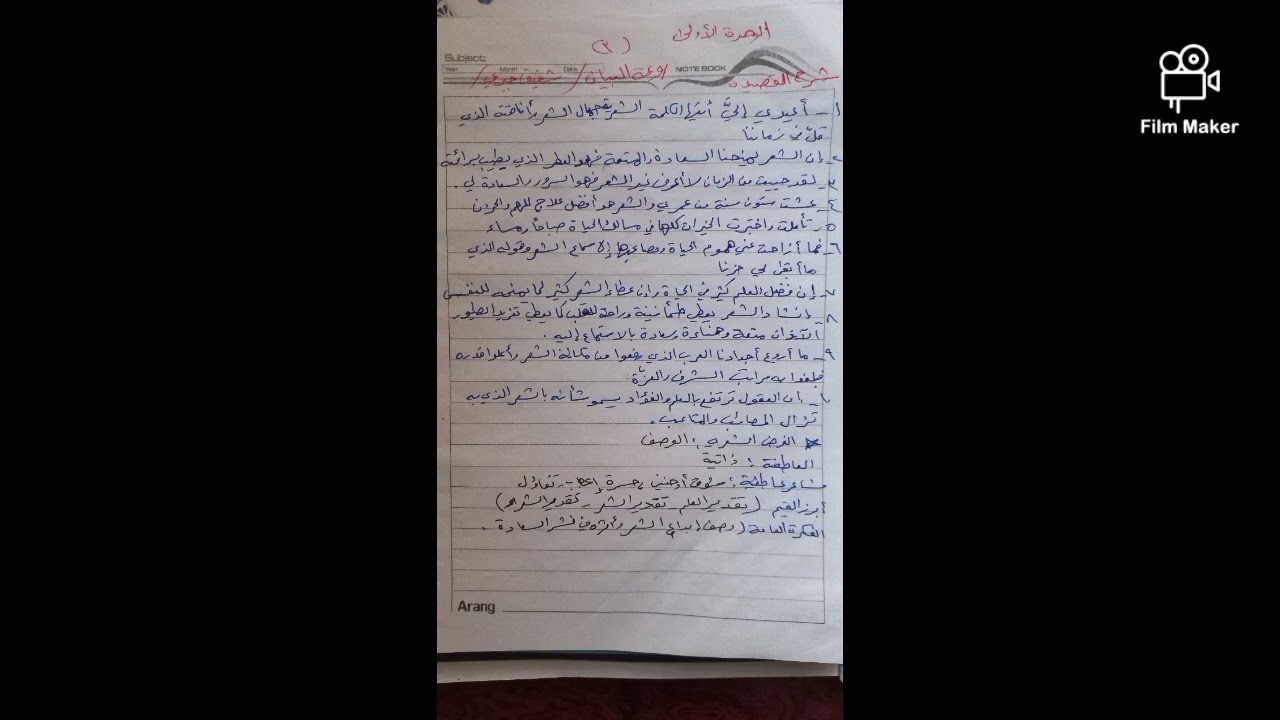 الوحدة الأولى
(٣)
Subject:
Year: Month Date:
NOTE BOOK
شرح القصيدة / روعة البيان / شفيق جبري /
١- أعيدي إليَّ أيتها الكلمة الشعرية جمال الشعر وأناقته الذي
قلّ في زماننا
٢- إن الشعر يمنحنا السعادة والمتعة فهو العطر الذي يطيب برائحته
٣- لقد حييت من الزمان لا أعرف غير الشعر فهو السرور والسعادة لي .
٤- عشت ستون سنة من عمري والشعر هو أفضل علاج للهم والحزن
٥- تأملت واختبرت الخيرات كلها في مسالك الحياة صباحاً ومساء
٦- فما أزاحت عني هموم الحياة ومصاعبها إلا سماع الشعر وقوله الذي
ما أبقى لي حزنا
٧- إن فضل العلم كثير في الحياة وإن عطاء الشعر كثير لما يمنحه للنفس
٨- إنشاد الشعر يعطي طمأنينة وراحة للقلب كما يعطي تغريد الطيور
الآذان متعة وهناءة وسعادة بالاستماع إليه .
٩- ما أروع أجدادنا العرب الذي رفعوا من مكانة الشعر وأعلوا قدره
فبلغوا به مراتب الشرف والعزّة
١٠- إن العقول ترتفع بالعلم والفؤاد يسمو شأنه بالشعر الذي به
تزال المصائب والمتاعب .
الغرض الشعري : الوصف
العاطفة : ذاتية
مشاعر عاطفية : حسرة إعجاب - تفاؤل
أبرز القيم ( تقدير العلم - تقدير الشعر -
الفكرة العامة ( وصف إبداع الشعر وأثره في نشر السعادة .
Arang
Film Maker